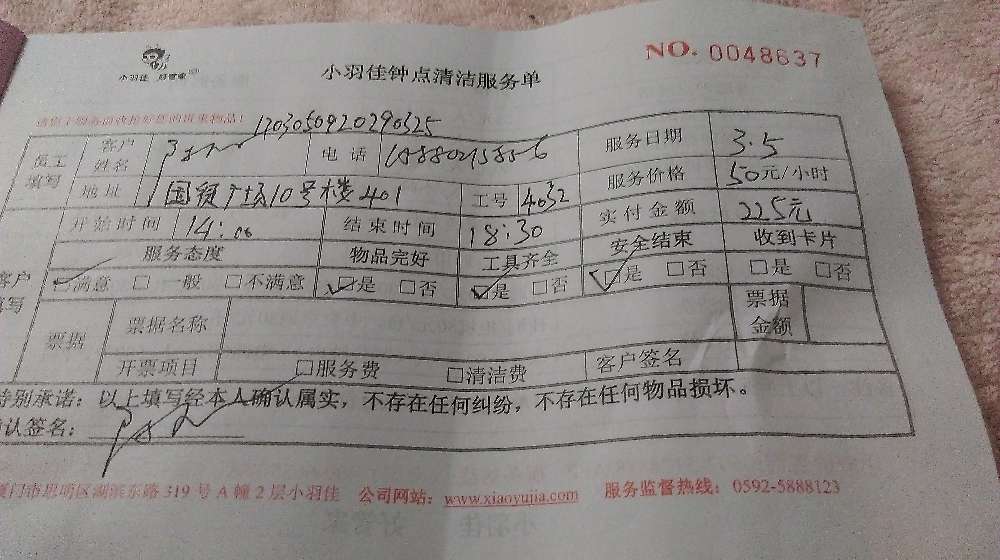 小羽佳 好管家
小羽佳钟点清洁服务单
NO. 0048637
1203050920290325
员工填写 客户姓名 电话 服务日期 3.5
地址 国贸广场10号楼401 工号 4032 服务价格 50元/小时
开始时间 14:00 结束时间 18:30 实付金额 225元
客户填写 服务态度 物品完好 工具齐全 安全结束 收到卡片
满意 □一般 □不满意 □是 □否 □是 □否 □是 □否 □是 □否
票据 票据名称 票据金额
开票项目 □服务费 □清洁费 客户签名
特别承诺：以上填写经本人确认属实，不存在任何纠纷，不存在任何物品损坏。
确认签名：
厦门市思明区湖滨东路319号A幢2层小羽佳 公司网站：www.xiaoyujia.com 服务监督热线：0592-5888123